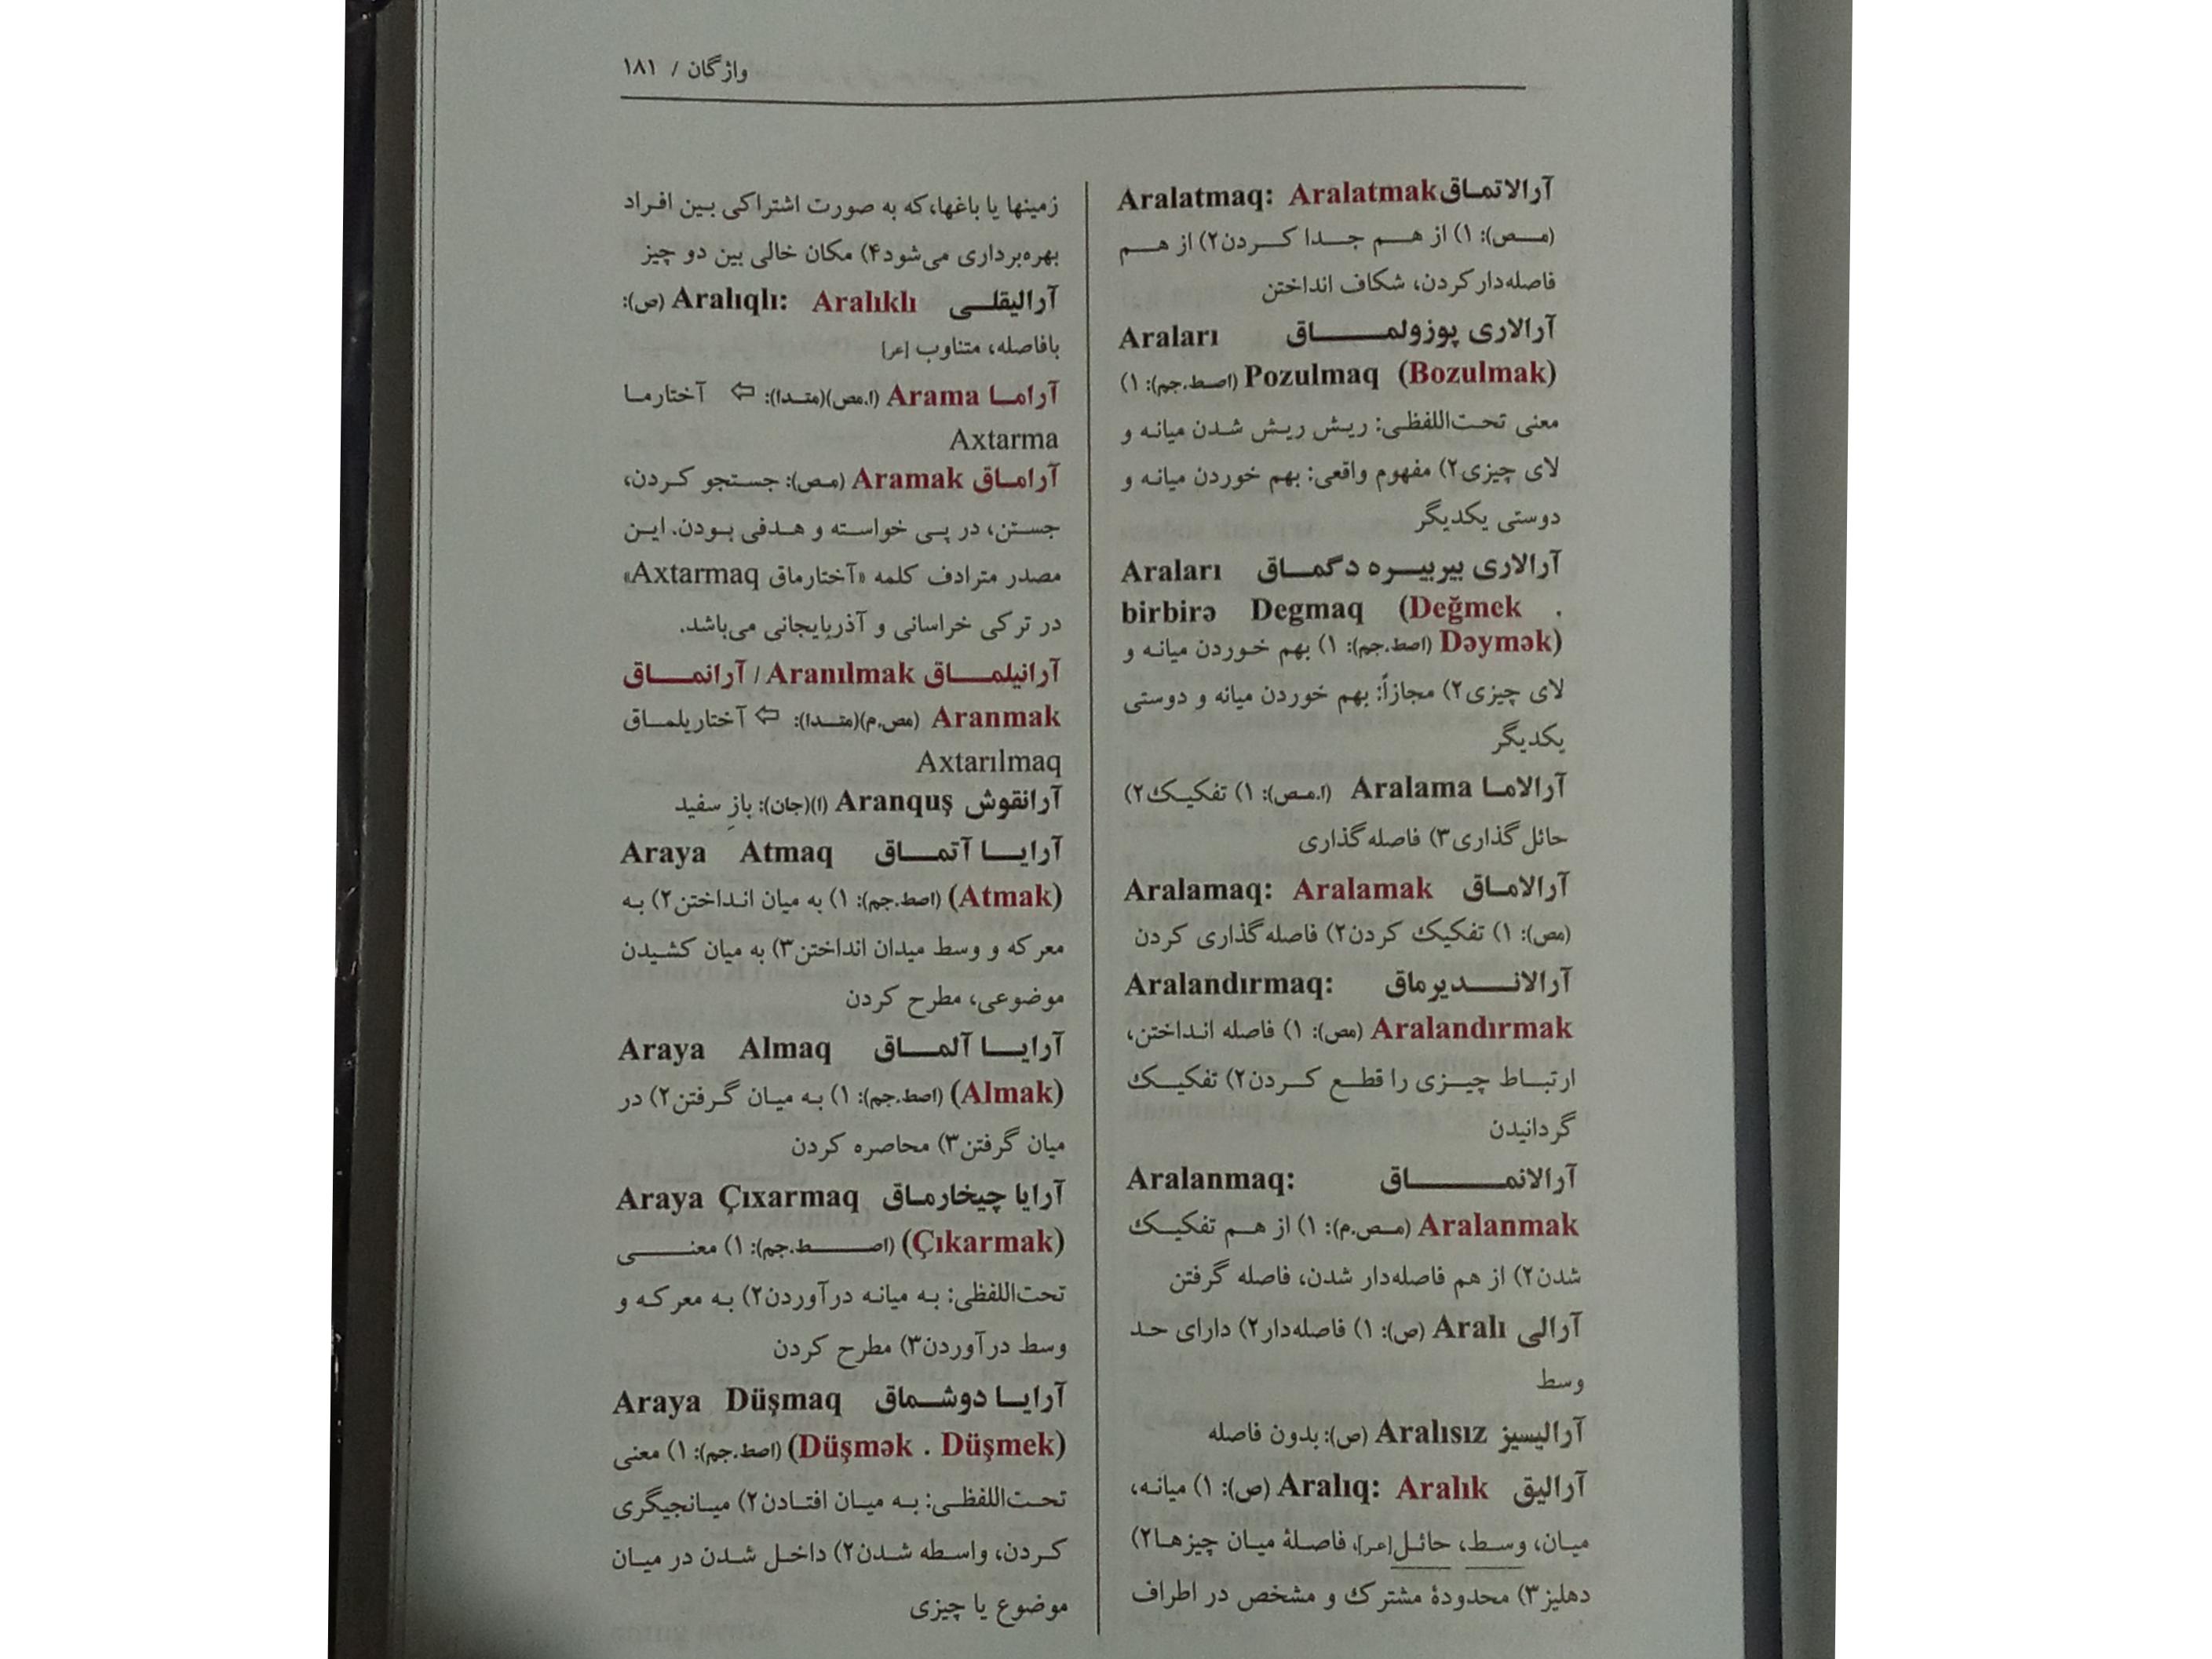 واژگان / ۱۸۱
آرالاتمـاق Aralatmaq: Aralatmak
(مـص): ۱) از هـم جـدا کـردن۲) از هـم
فاصله‌دار کردن، شکاف انداختن
آرالاری پوزولمـــاق Araları
Pozulmaq (Bozulmak) (اصط.جم): ۱)
معنی تحت‌اللفظی: ریش ریش شدن میانه و
لای چیزی۲) مفهوم واقعی: بهم خوردن میانه و
دوستی یکدیگر
آرالاری بیربیـره دگمـاق Araları
birbirə Degmaq (Değmek .
Dəymək) (اصط.جم): ۱) بهم خوردن میانه و
لای چیزی۲) مجازاً: بهم خوردن میانه و دوستی
یکدیگر
آرالاما Aralama (ا.مص): ۱) تفکیک۲)
حائل گذاری۳) فاصله گذاری
آرالاماق Aralamaq: Aralamak
(مص): ۱) تفکیک کردن۲) فاصله گذاری کردن
آرالانـــدیرماق Aralandırmaq:
Aralandırmak (مص): ۱) فاصله انداختن،
ارتبـاط چیـزی را قطـع کـردن۲) تفکیـک
گردانیدن
آرالانمـــاق Aralanmaq:
Aralanmak (مـص.م): ۱) از هـم تفکیـک
شدن۲) از هم فاصله‌دار شدن، فاصله گرفتن
آرالی Aralı (ص): ۱) فاصله‌دار۲) دارای حـد
وسط
آرالیسیز Aralısız (ص): بدون فاصله
آرالیق Aralıq: Aralık (ص): ۱) میانه،
میان، وسط، حائل[عر]، فاصلۀ میان چیزها۲)
دهلیز۳) محدودۀ مشترک و مشخص در اطراف
زمینها یا باغها،که به صورت اشتراکی بـین افـراد
بهره‌برداری می‌شود۴) مکان خالی بین دو چیز
آرالیقلـی Aralıqlı: Aralıklı (ص):
بافاصله، متناوب [عر]
آرامـا Arama (ا.مص)(متـدا): ⇦ آختارمـا
Axtarma
آرامـاق Aramak (مـص): جسـتجو کـردن،
جسـتن، در پـی خواسـته و هـدفی بـودن. ایـن
مصدر مترادف کلمه «آختارماق Axtarmaq»
در ترکی خراسانی و آذربایجانی می‌باشد.
آرانیلمـاق Aranılmak / آرانمـاق
Aranmak (مص.م)(متـدا): ⇦ آختاریلمـاق
Axtarılmaq
آرانقوش Aranquş (ا)(جان): بازِ سفید
آرایـا آتمـاق Araya Atmaq
(Atmak) (اصط.جم): ۱) به میان انـداختن۲) بـه
معرکه و وسط میدان انداختن۳) به میان کشـیدن
موضوعی، مطرح کردن
آرایـا آلمـاق Araya Almaq
(Almak) (اصط.جم): ۱) بـه میـان گـرفتن۲) در
میان گرفتن۳) محاصره کردن
آرایا چیخارمـاق Araya Çıxarmaq
(Çıkarmak) (اصـط.جم): ۱) معنـی
تحت‌اللفظی: بـه میانـه درآوردن۲) بـه معرکـه و
وسط درآوردن۳) مطرح کردن
آرایـا دوشـماق Araya Düşmaq
(Düşmək . Düşmek) (اصط.جم): ۱) معنی
تحـت‌اللفظـی: بـه میـان افتـادن۲) میـانجیگری
کـردن، واسـطه شـدن۲) داخـل شـدن در میـان
موضوع یا چیزی